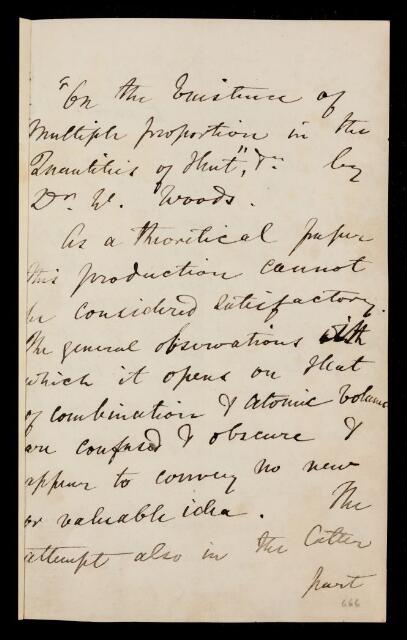 "On the Existence of
Multiple proportion in the
Quantities of Heat", &c by
Dr. W. Woods.
As a theoretical paper
this production cannot
be considered satisfactory.
The general observations with
which it opens on Heat
of combination & atomic volume
are confused & obscure &
appear to convey no new
or valuable idea. The
attempt also in the latter
part
666